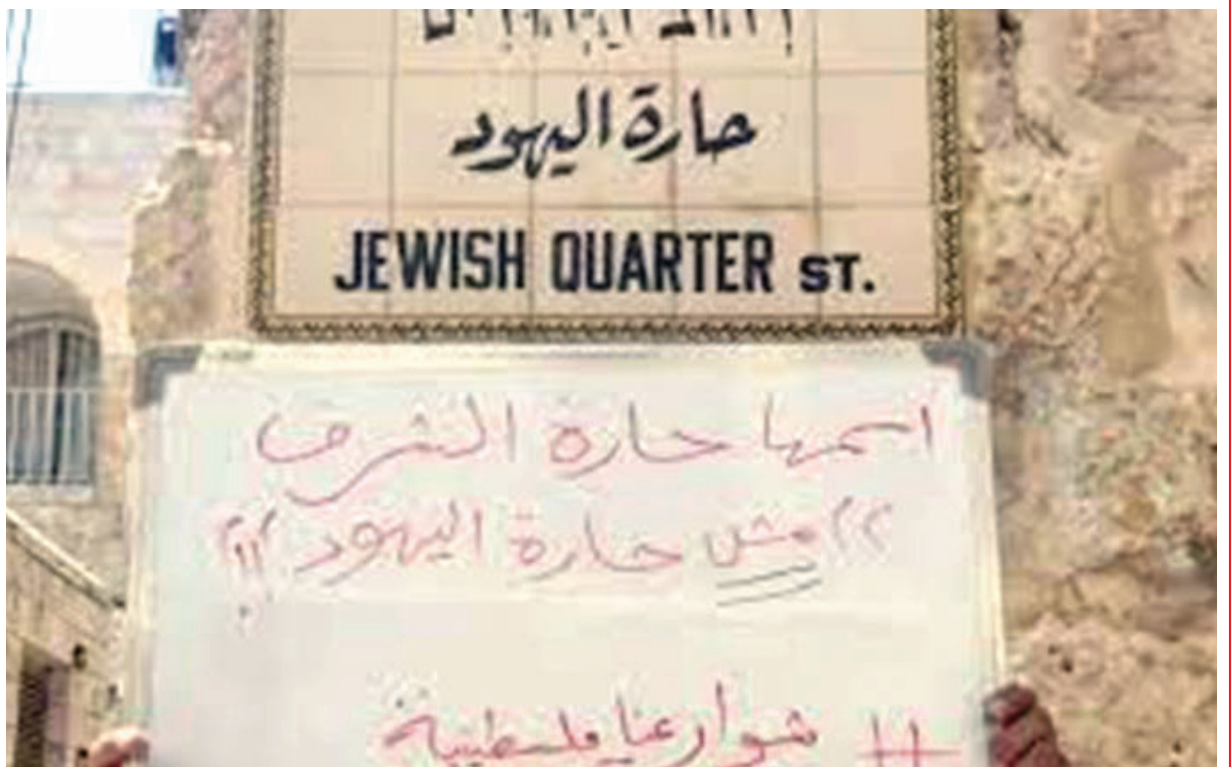 حارة اليهود
JEWISH QUARTER ST.
اسمها حارة الشرف
"مش حارة اليهود"!!
# شوارعنا فلسطينية